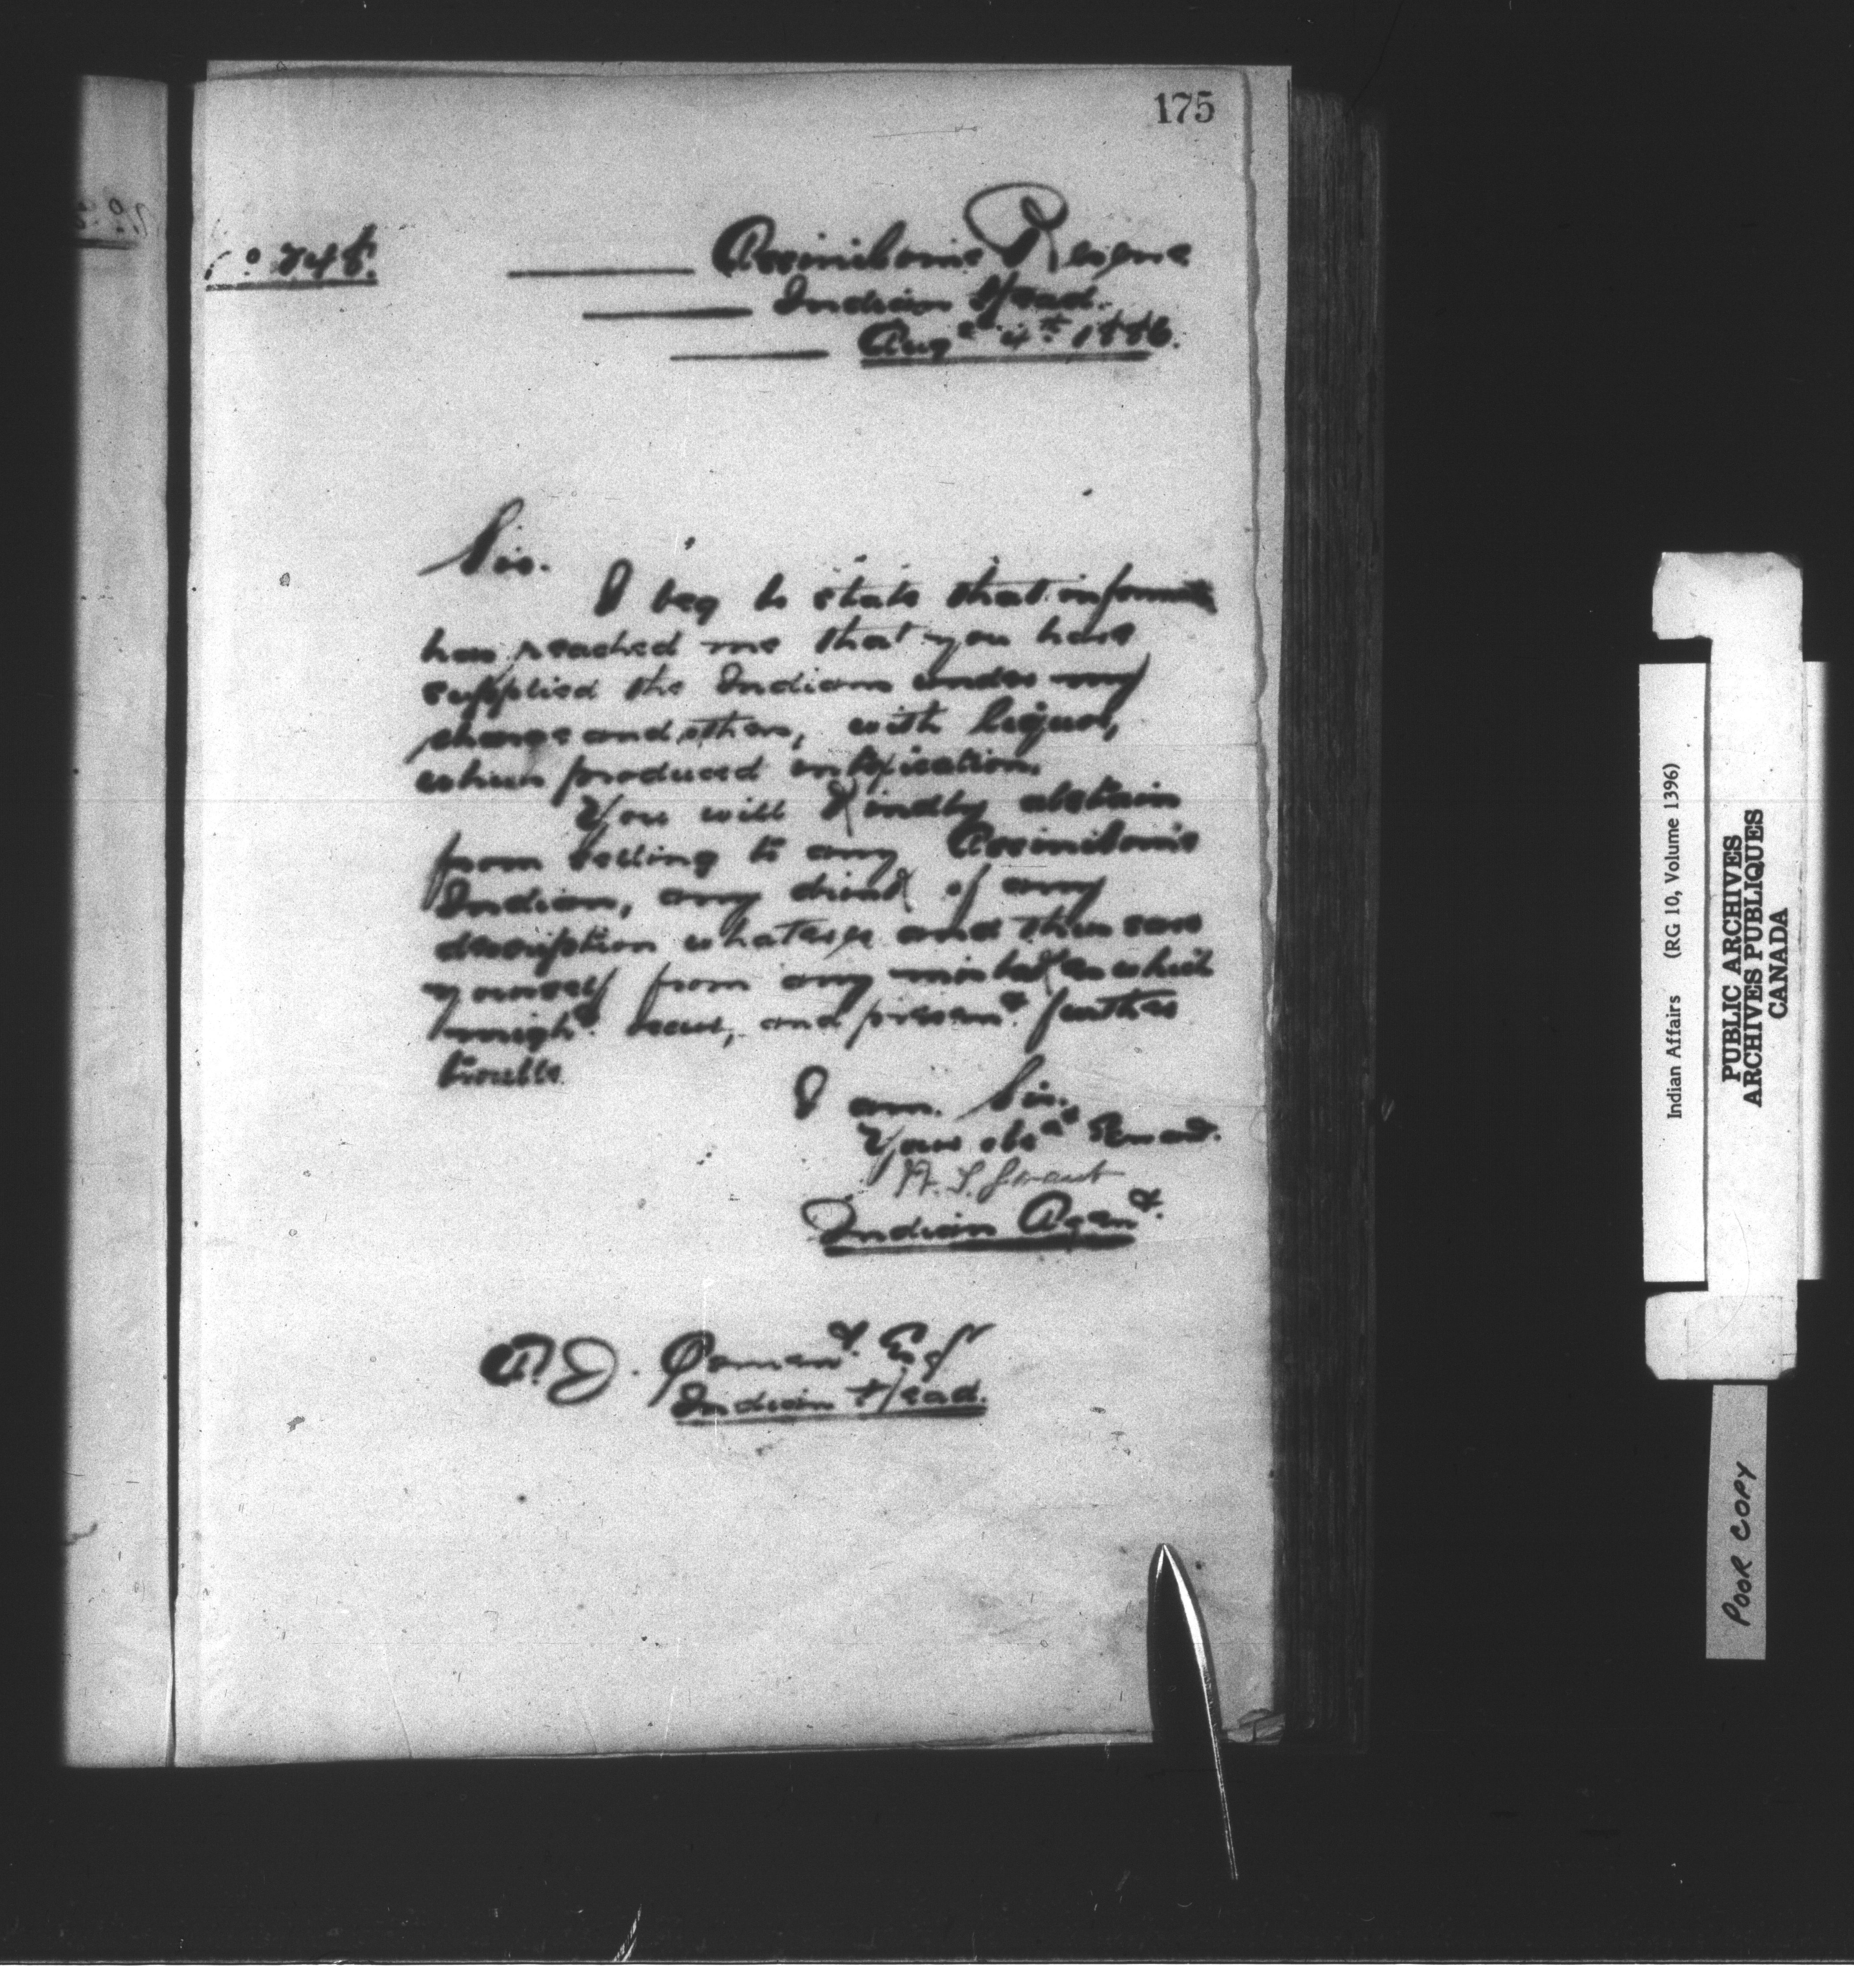 175
No 748.
Assiniboine Reserve
Indian Head.
Augst 4th 1886.
Sir.
I beg to state that information
has reached me that you have
supplied the Indians under my
charge and others, with liquor,
which produced intoxication.
You will Kindly abstain
from selling to any Assiniboine
Indian, any drink of any
description whatever and thus save
yourself from any mistakes which
might occur, and prevent further
trouble.
I am. Sir.
Your obdt Servant.
W. S. Grant
Indian Agent.
Esq
Indian Head.
Indian Affairs (RG 10, Volume 1396)
PUBLIC ARCHIVES
ARCHIVES PUBLIQUES
CANADA
POOR COPY